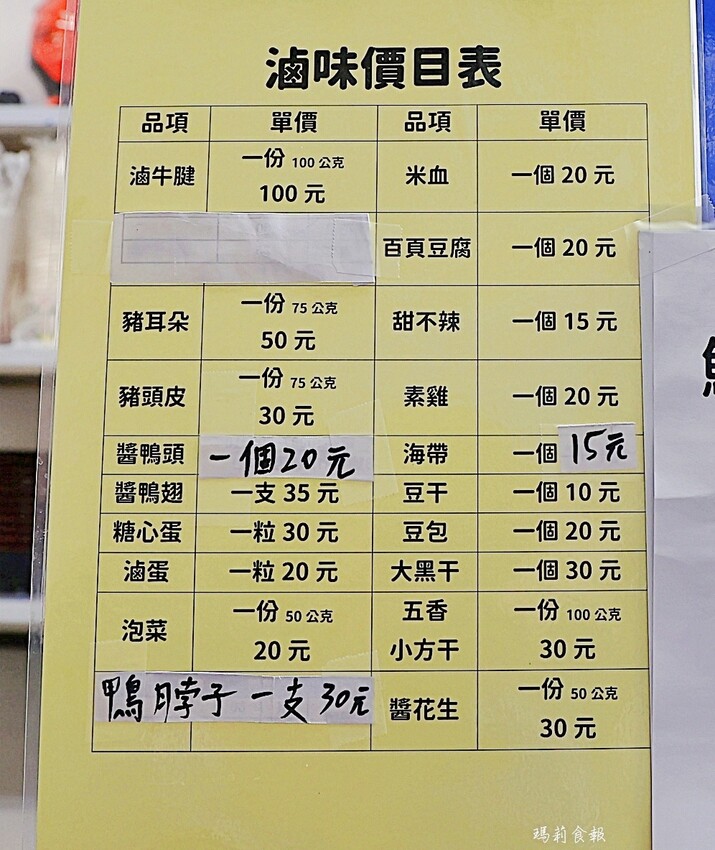 滷味價目表
品項 單價 品項 單價
滷牛腱 一份 100公克 100元 米血 一個 20 元
百頁豆腐 一個 20 元
豬耳朵 一份 75公克 50元 甜不辣 一個 15 元
豬頭皮 一份 75公克 30元 素雞 一個 20 元
醬鴨頭 一個20元 海帶 一個 15元
醬鴨翅 一支 35 元 豆干 一個 10 元
糖心蛋 一粒 30 元 豆包 一個 20 元
滷蛋 一粒 20 元 大黑干 一個 30 元
泡菜 一份 50公克 20 元 五香小方干 一份 100公克 30 元
鴨脖子 一支 30元 醬花生 一份 50公克 30 元
瑪莉食報